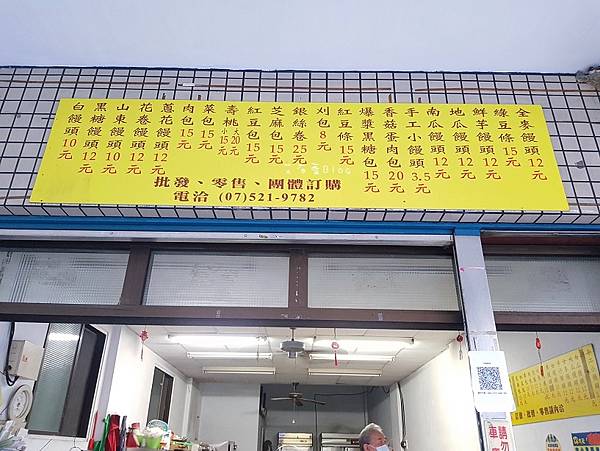 白饅頭10元
黑糖饅頭12元
山東饅頭12元
花卷饅頭12元
蔥花卷12元
肉包15元
菜包15元
壽桃大20小15元
紅豆包15元
芝麻包15元
銀絲卷25元
刈包8元
紅豆條15元
爆漿黑糖包15元
香菇蛋肉包20元
手工小饅頭3.5元
南瓜饅頭12元
地瓜饅頭12元
鮮芋饅頭12元
綠豆條15元
全麥饅頭12元
批發、零售、團體訂購
電洽 (07)521-9782
Blog